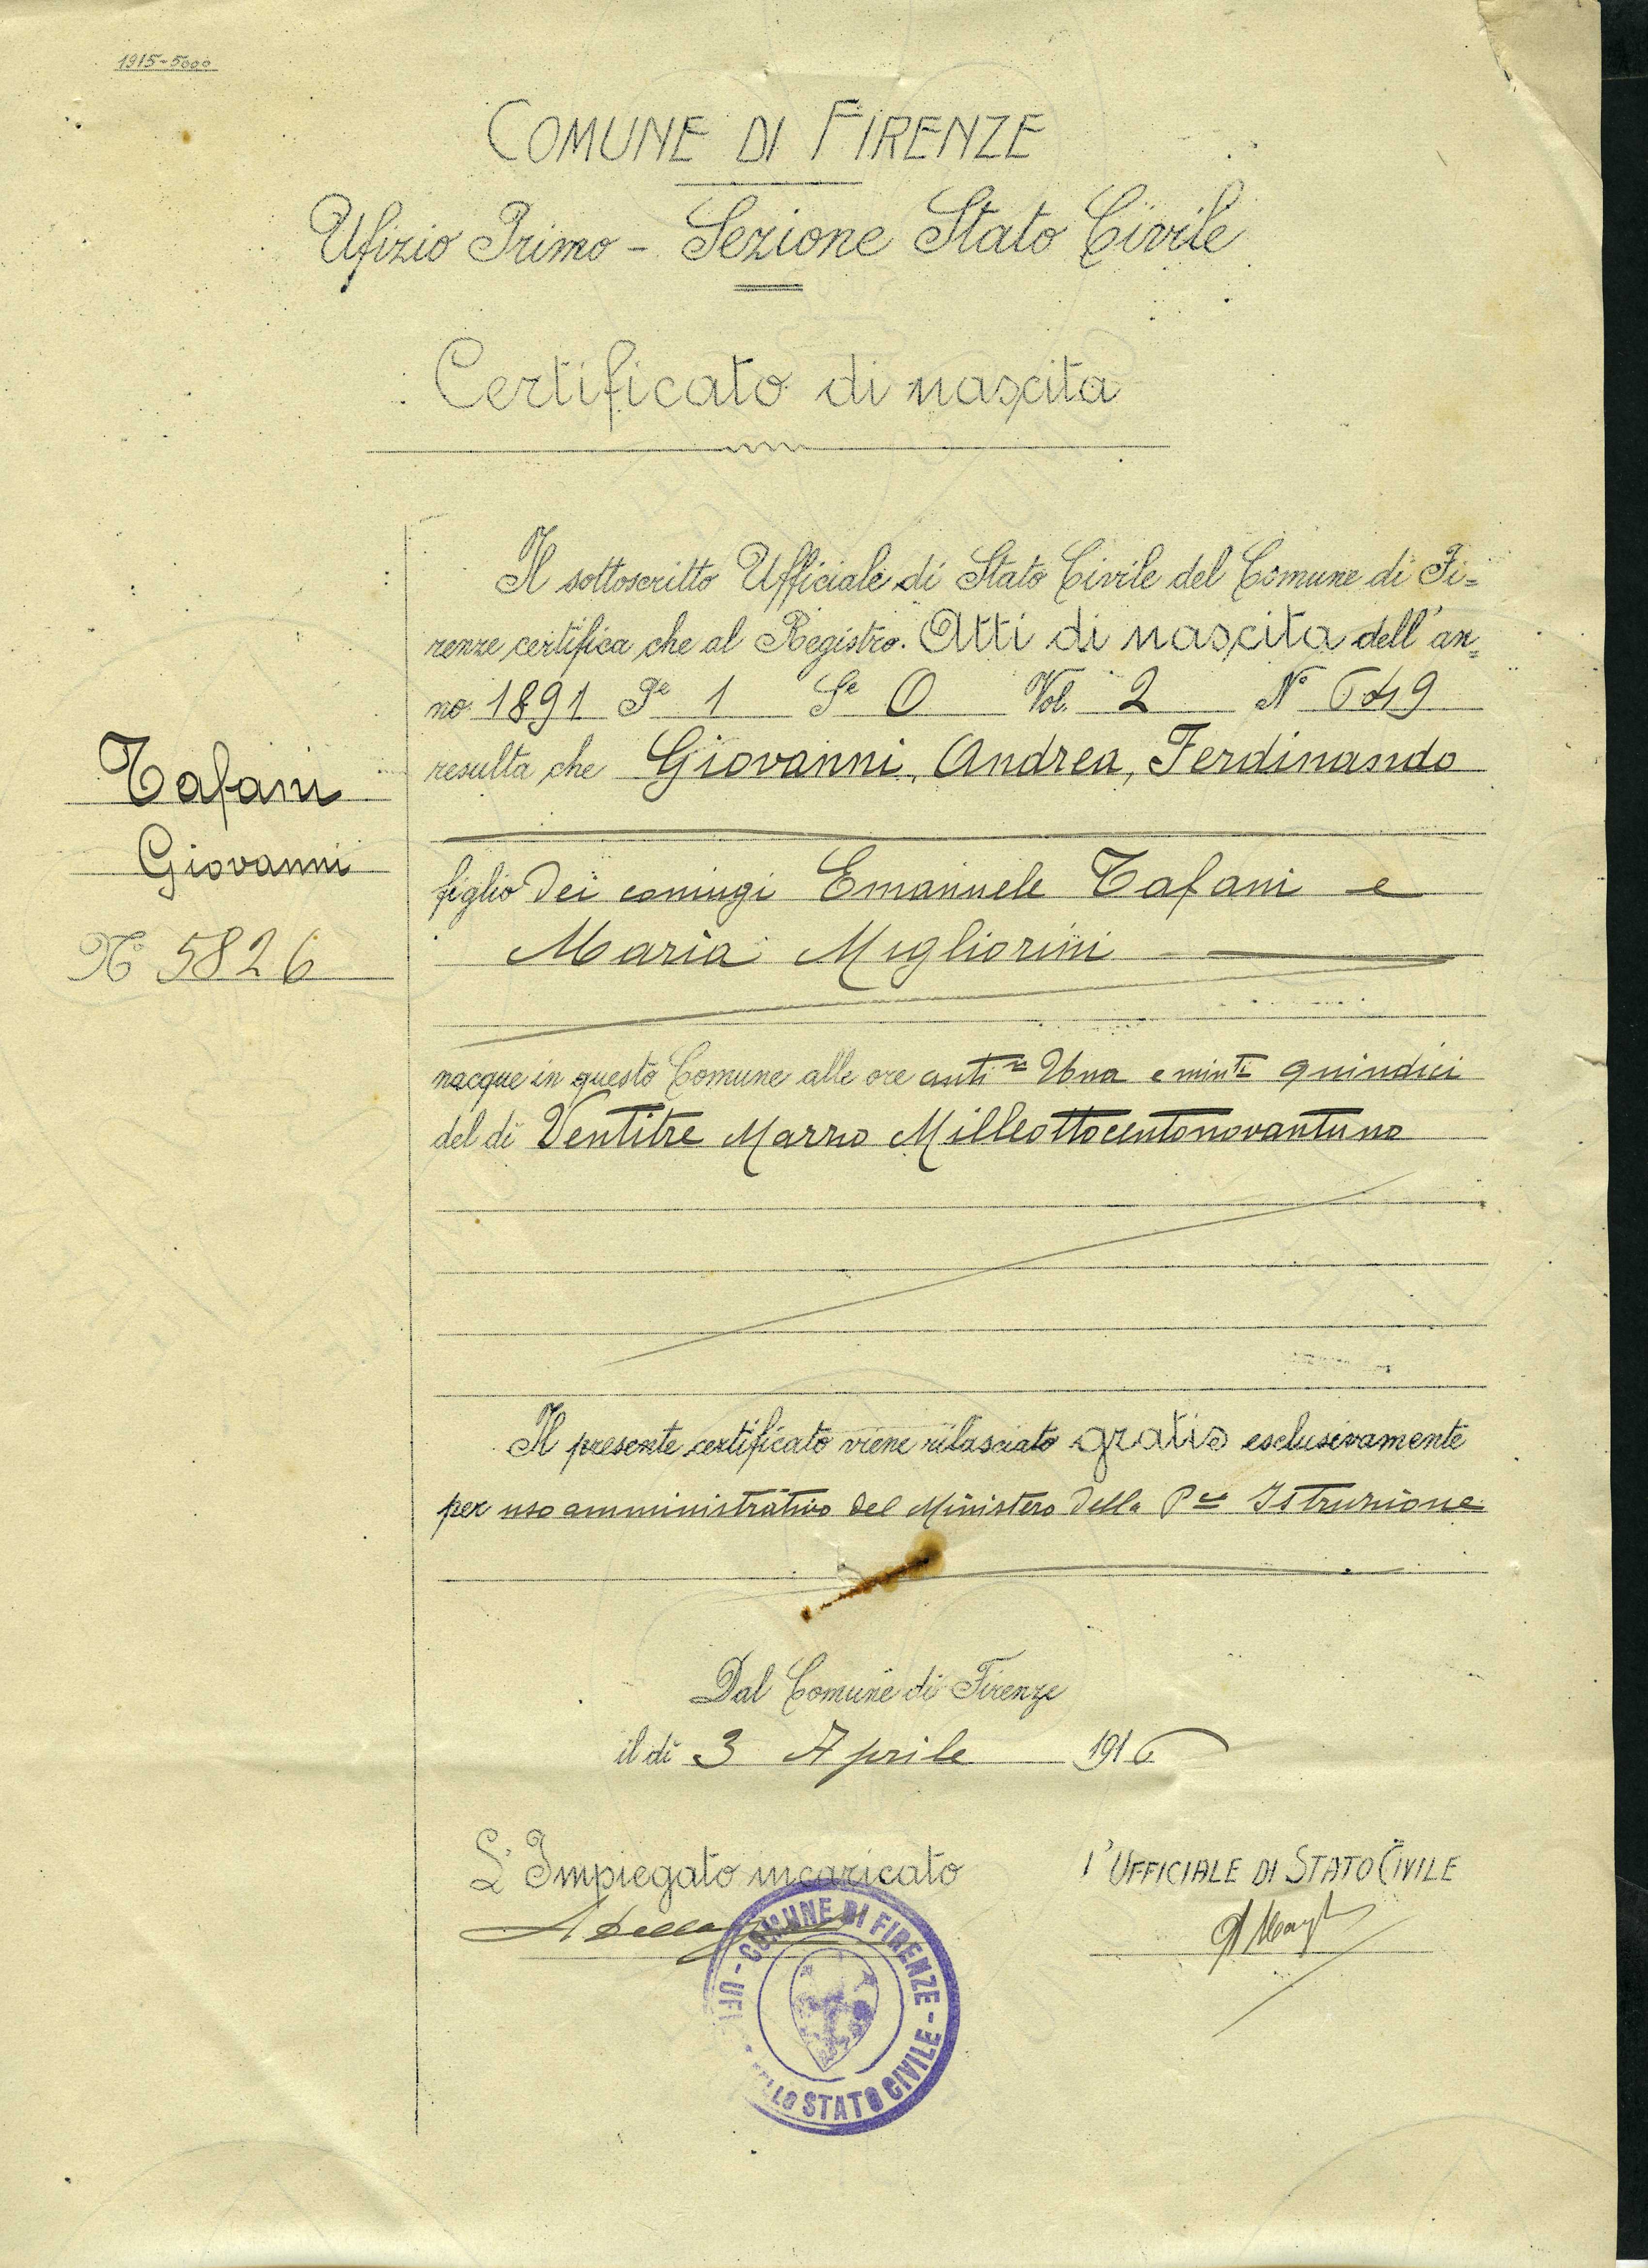 1915-5000
COMUNE DI FIRENZE
Ufizio Primo - Sezione Stato Civile
Certificato di nascita
Il sottoscritto Ufficiale di Stato Civile del Comune di Fi=
renze certifica che al Registro Atti di nascita dell'an=
no 1891 Pe 1 Se 0 Vol. 2 N° 649
resulta che Giovanni, Andrea, Ferdinando
Tafani
Giovanni
N° 5826
figlio dei coniugi Emanuele Tafani e
Maria Migliorini
nacque in questo Comune alle ore antine Una e minti quindici
del dì Ventitre Marzo Milleottocentonovantuno
Il presente certificato viene rilasciato gratis esclusivamente
per uso amministrativo del Ministero della Pca Istruzione
Dal Comune di Firenze
il dì 3 Aprile 1916
L'Impiegato incaricato
l'UFFICIALE DI STATO CIVILE
COMUNE DI FIRENZE - STATO CIVILE